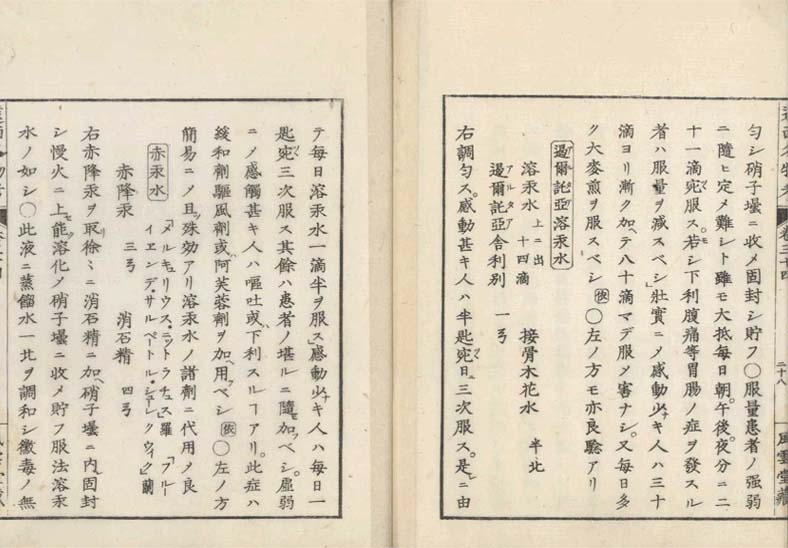 匀シ硝子壜ニ收メ固封シ貯フ〇服量患者ノ强弱
ニ隨ヒ定メ難シト雖モ大抵每日朝。午後。夜分ニ二
十一滴宛服ス。若シ下利腹痛等胃腸ノ症ヲ發スル
者ハ服量ヲ減スベシ」壯實ニメ感動少ナキ人ハ三十
滴ヨリ漸ク加ヘテ八十滴マデ服メ害ナシ。又每日多
ク大麥煎ヲ服スベシ〇左ノ方モ亦良驗アリ
溶汞水 上ニ出 十四滴 接骨木花水 半
舍利別 一
右調匀ス。感動甚キ人ハ半匙宛日ニ三次服ス。是ニ由
卷三十四
二十八
風雲堂藏
テ每日溶汞水一滴半ヲ服ス」感動少ナキ人ハ每日一
匙宛三次服ス其餘ハ患者ノ堪ルニ隨ヒ加フベシ。虛弱
ニメ感觸甚キ人ハ嘔吐或ハ下利スルヿアリ。此症ハ
緩和劑驅風劑或ハ阿芙蓉劑ヲ加ヘ用フベシ〇左ノ方
簡易ニメ且ツ殊効アリ溶汞水ノ諸劑ニ代用メ良
赤汞水 「メルキュリウス・ニットラチュス」羅 「フルー
イエンデ・サルペートル・シュールクウィク」蘭
赤降汞 三 消石精 四
右赤降汞ヲ取徐々ニ消石精ニ加ヘ硝子壜ニ内レ固封
シ慢火ニ上セ能溶化メ硝子壜ニ收メ貯フ服法溶汞
水ノ如シ〇此液ニ蒸餾水一ヲ調和シ黴毒ノ無